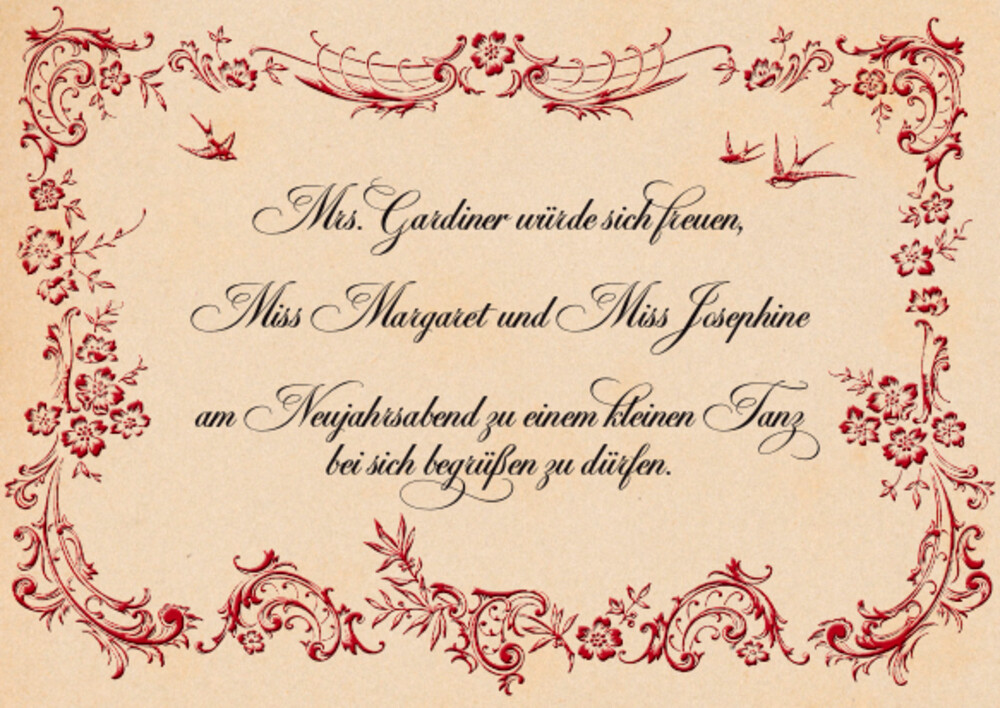 Mrs. Gardiner würde sich freuen,
Miss Margaret und Miss Josephine
am Neujahrsabend zu einem kleinen Tanz
bei sich begrüßen zu dürfen.